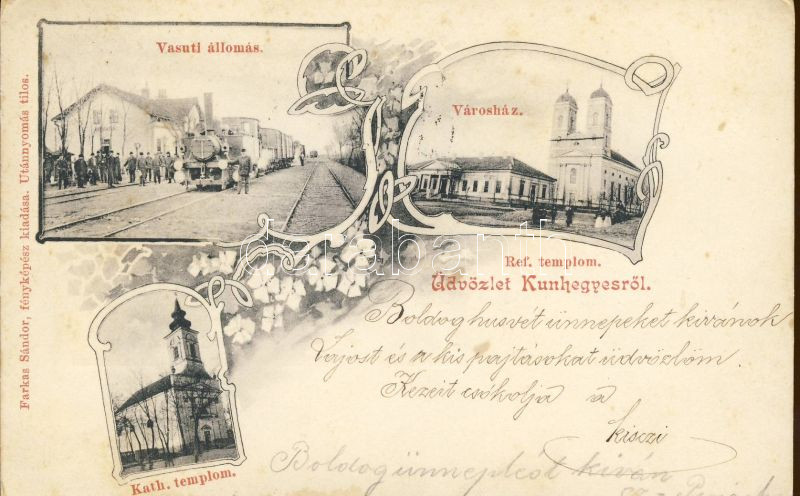 Vasuti állomás.
Városház.
Ref. templom.
Üdvözlet Kunhegyesről.
Kath. templom.
Farkas Sándor, fényképész kiadása. Utánnyomás tilos.
Boldog husvét ünnepeket kivánok
Lajost és a kis pajtásokat üdvözlöm
Kezeit csókolja a
kiszi
Boldog kiván
darabanth